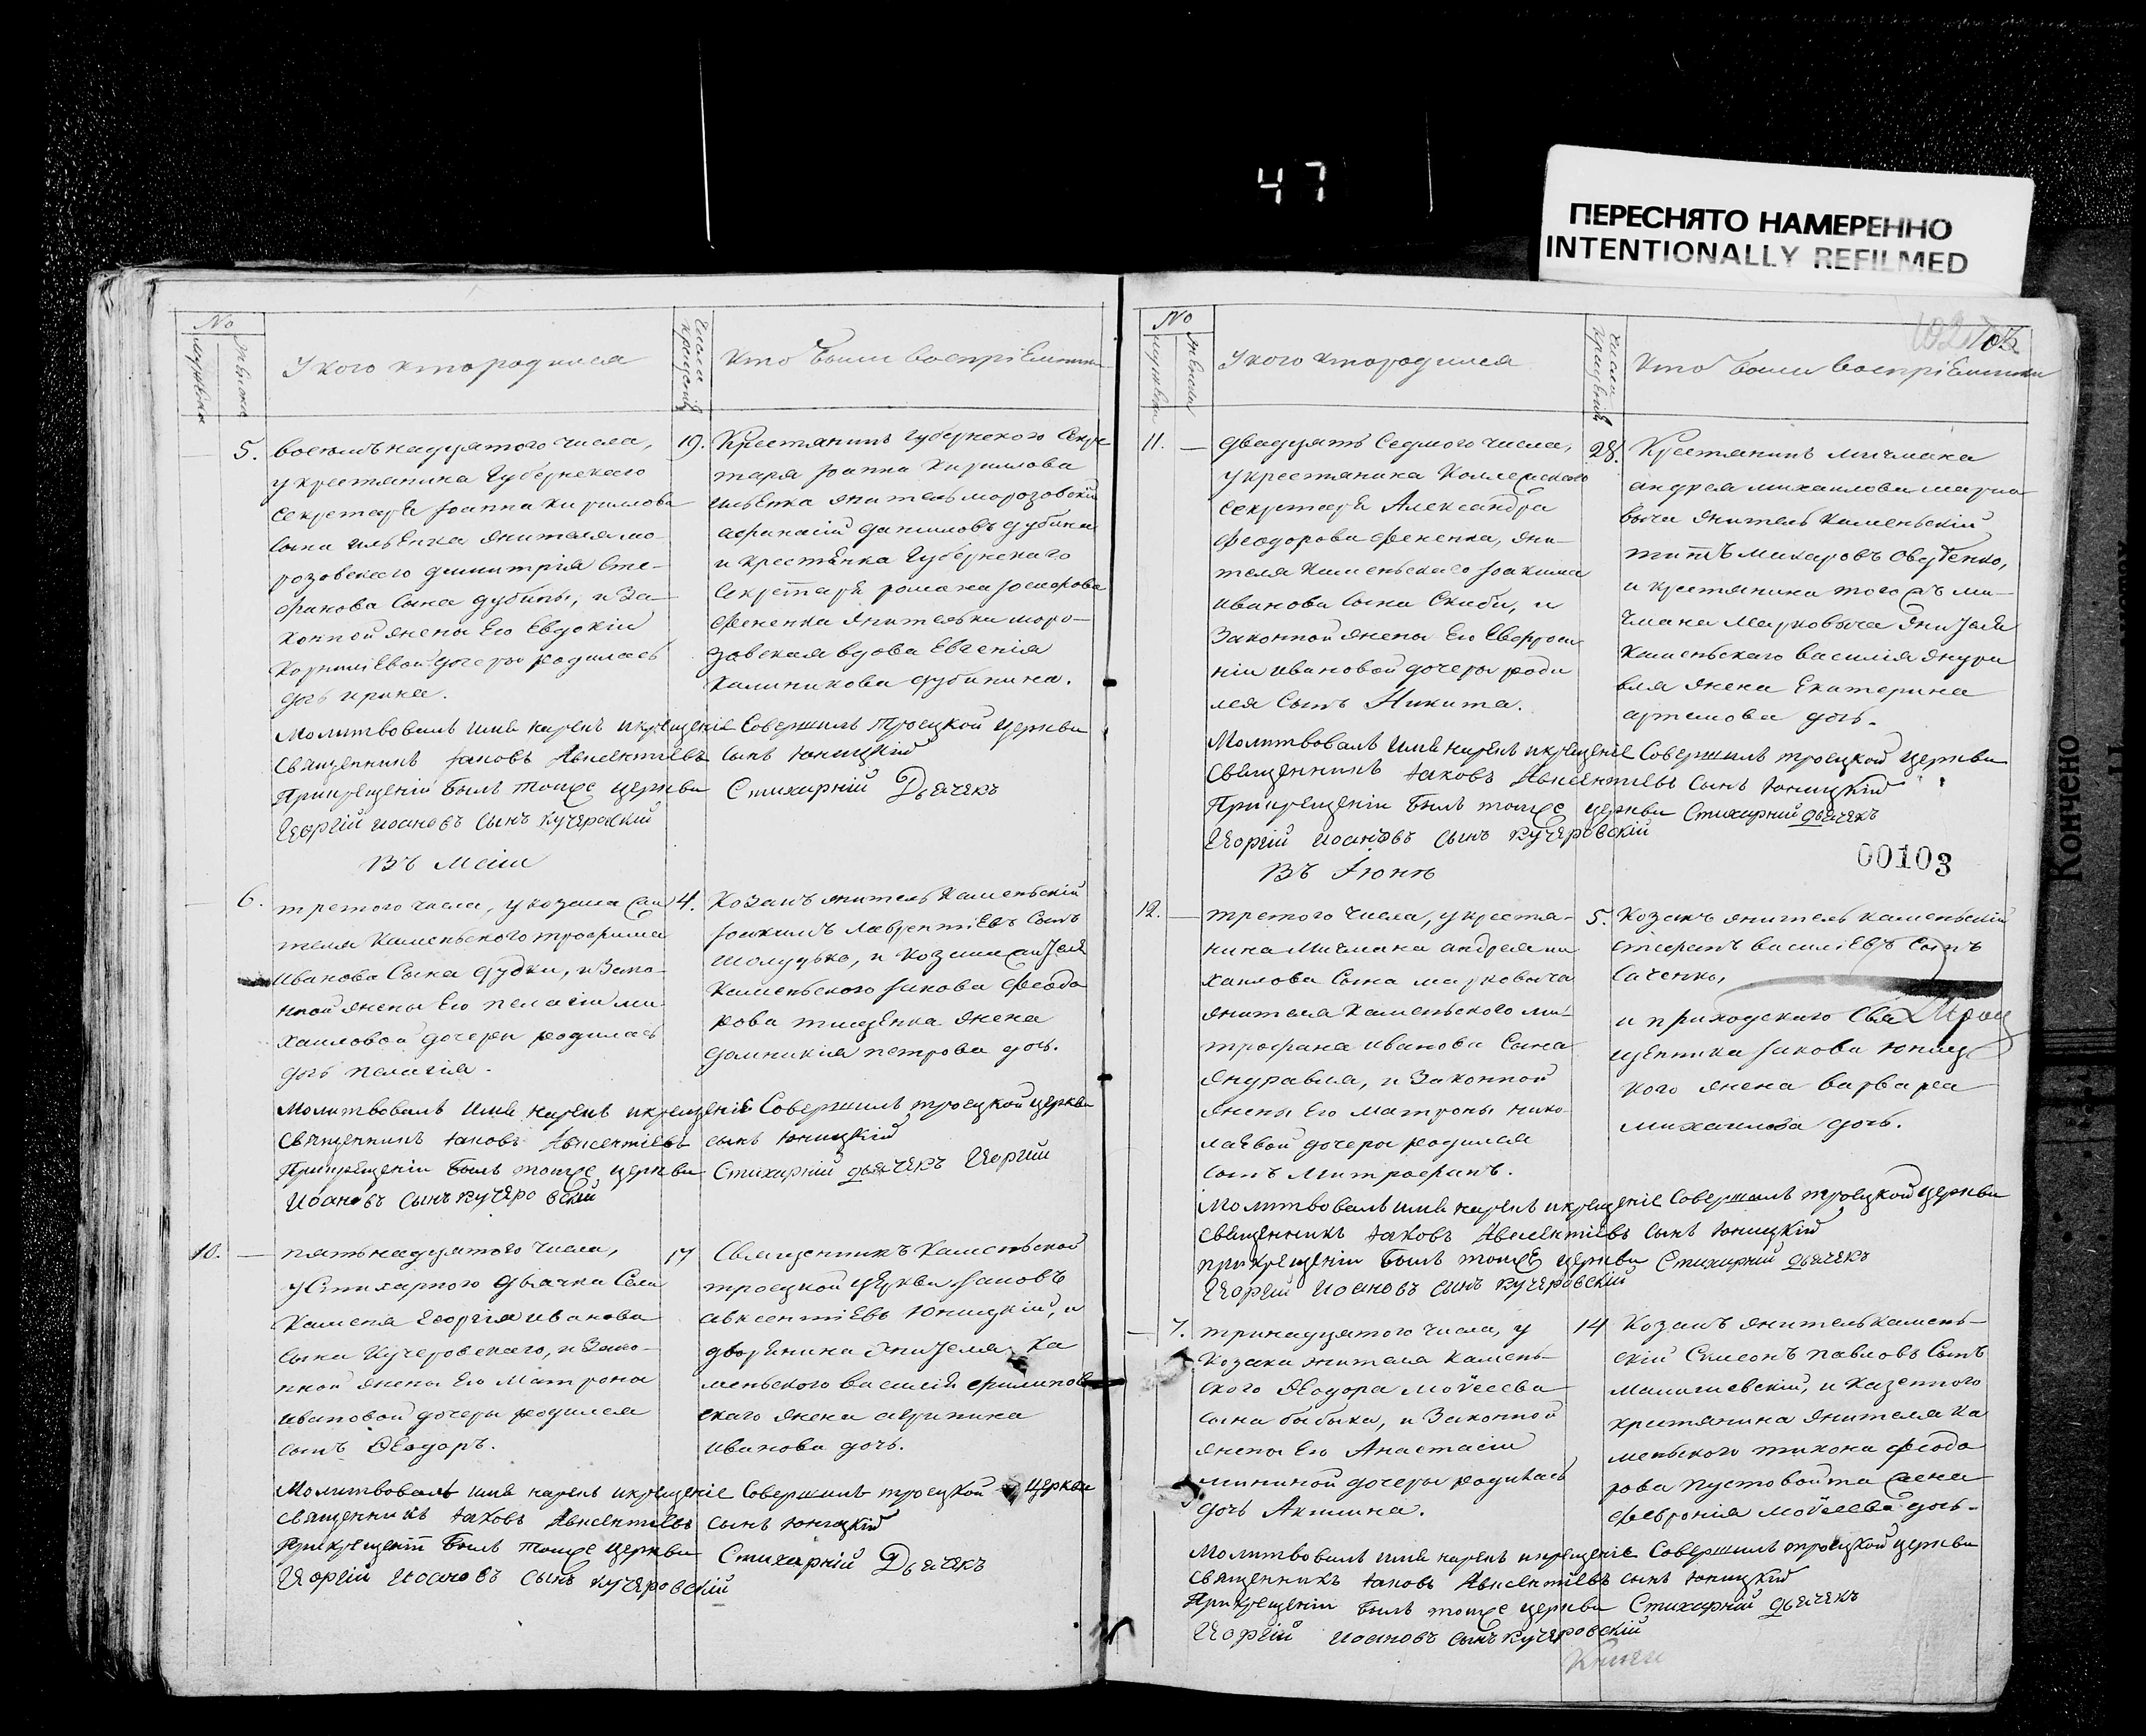 47
ПЕРЕСНЯТО НАМЕРЕННО
INTENTIONALLY REFILMED
№
мужеска
женска
У кого кто родился
Числа крещенія
Кто были воспріемники
5.
восемънадцятого числа,
у крестянина Губернскаго
секретаря Іоанна Кирилова
сына Ильенка жителя мо-
розовскаго димитрія Сте-
фанова сына дубины, и За-
конной жены Его Евдокіи
Корниліевой дочеры родилась
дочь ирина.
19.
Крестянинъ Губернского Секре
таря Іоанна Кирилова
Ильенка житель морозовскій
афанасій даниловъ дубина
и крестянка Губернскаго
Секретаря романа Іосифова
Фененка жителька моро-
зовская вдова Евгенія
Калиникова дубинина.
Молитвовалъ имя нарекъ и крещеніе Совершилъ троецкой церкви
Священникъ Іаковъ Авксентіевъ сынъ Юницкій
При крещеніи былъ тоиже церкви Стихарній Дьячекъ
Георгій Иоановъ Сынъ Кучеровскій
Въ Маіи
6.
третого числа, у козака жи
теля Каменьского трофима
Иванова Сына дудки, и Зако-
нной жены Его пелагіи ми-
хаиловой дочеры родилась
дочь пелагія.
4.
Козакъ житель Каменьскій
Іоакимъ Лаврентіевъ Сынъ
Шолудько, и козака жителя
Каменьского Іакова Феодо
рова тищенка жена
домникія петрова дочь.
Молитвовалъ имя нарекъ и крещеніе Совершилъ троецкой церкви
Священникъ Іаковъ Авксентіевъ сынъ Юницкій
При крещеніи былъ тоиже церкви Стихарній дьячекъ Георгій
Иоановъ Сынъ Кучеровскій
10. —
пятьнадцятого числа,
у Стихарного дьячка Села
Каменя Георгія иванова
сына Кучеровскаго, и Зако-
нной жены Его Матроны
ивановой дочеры родился
сынъ Феодоръ.
17
Священникъ Каменьской
троецкой церкви Іаковъ
авксентіевъ Юницкій, и
дворянина жителя Ка
меньского василія филипов
скаго жена агрипина
иванова дочь.
Молитвовалъ имя нарекъ и крещеніе Совершилъ троецкой церкви
Священникъ Іаковъ Авксентіевъ сынъ Юницкій
При крещеніи былъ тоиже церкви Стихарній Дьячекъ
Георгій Иоановъ Сынъ Кучеровскій
№
мужеска
женска
У кого кто родился
Числа крещенія
Кто были воспріемники
11. —
двадцять седмого числа,
у крестянина Коллежского
секретаря Александра
Феодорова Фененка, жи-
теля Каменьскаго Іоакима
иванова сына Скибы, и
Законной жены Его Евфроси
ніи ивановой дочеры роди
лся Сынъ Никита.
28.
Крестянинъ мичмана
андрея михаилова марко
выча житель Каменьскій
титъ Макаровъ Овдѣенко,
и крестянина того жъ ми-
чмана Марковыча жителя
Каменьскаго василія жура
вля жена Екатерина
артемова дочь.
Молитвовалъ имя нарекъ и крещеніе Совершилъ троецкой церкви
Священникъ Іаковъ Авксентіевъ сынъ Юницкій
При крещеніи былъ тоиже церкви Стихарній дьячекъ
Георгій Иоановъ Сынъ Кучеровскій
00103
Въ Іюнѣ
12. —
третого числа, у крестя-
нина Мичмана андрея ми
хаилова Сына марковыча
жителя Каменьского ми-
трофана иванова Сына
журавля, и Законной
жены Его матроны нико-
лаевой дочеры родился
сынъ Митрофанъ.
5.
Козакъ житель каменьскій
стефанъ василіевъ сынъ
Саченко,
и приходскаго Свя
щенника Іакова Юниц
кого жена варвара
михаилова дочь.
Молитвовалъ имя нарекъ и крещеніе Совершилъ троецкой церкви
Священникъ Іаковъ Авксентіевъ сынъ Юницкій
при крещеніи былъ тоиже церкви Стихарній дьячекъ
Георгій Иоановъ Сынъ Кучеровскій
— 7.
тринадцятого числа, у
козака жителя Камень-
ского Феодора Мойсеева
сына бабыка, и Законной
жены Его Анастасіи
мининой дочеры родилась
дочь Акилина.
14
Козакъ житель камень-
скій Симеонъ павловъ Сынъ
, и казенного
крестянина жителя Ка
меньского тихона феодо
рова пустовойта жена
февронія Мойсеева дочь.
Молитвовалъ имя нарекъ и крещеніе Совершилъ троецкой церкви
Священникъ Іаковъ Авксентіевъ сынъ Юницкій
При крещеніи былъ тоиже церкви Стихарній дьячекъ
Георгій Иоановъ сынъ Кучеровскій
Книги
Кончено